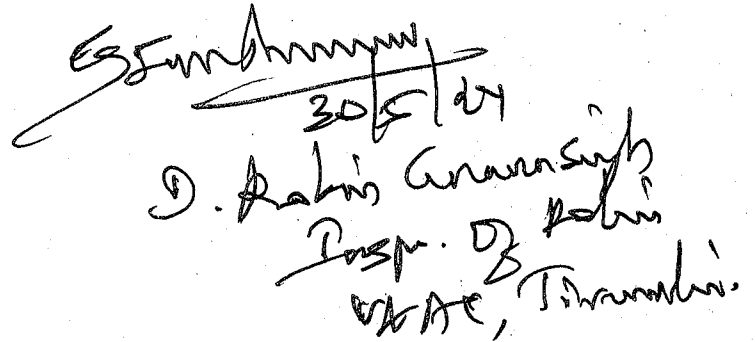 30/5/24
D. Robin Gnanasingh
Inspr. Of Police
V&AC, Tirunelveli.